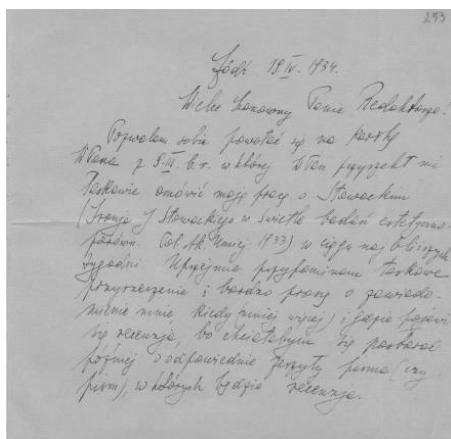 293
Łódź 19 IV. 1934.
Wielce Szanowny Panie Redaktorze!
Pozwalam sobie powołać się na kartkę
WPana z 5. III. b.r. w której WPan przyrzekł mi
łaskawie omówić moją pracę o Słowackim
(Ironja J. Słowackiego w świetle badań estetyczno-
porówn. Ak. Umiej. 1933) w ciągu najbliższych
tygodni. Uprzejmie przypominam łaskawe
przyrzeczenie i bardzo proszę o zawiado-
mienie mnie kiedy (mniej więcej) i gdzie pojawi
się recenzja, bo chciałabym się postarać
później o odpowiednie zeszyty pisma (czy
pism), w których będzie recenzja.